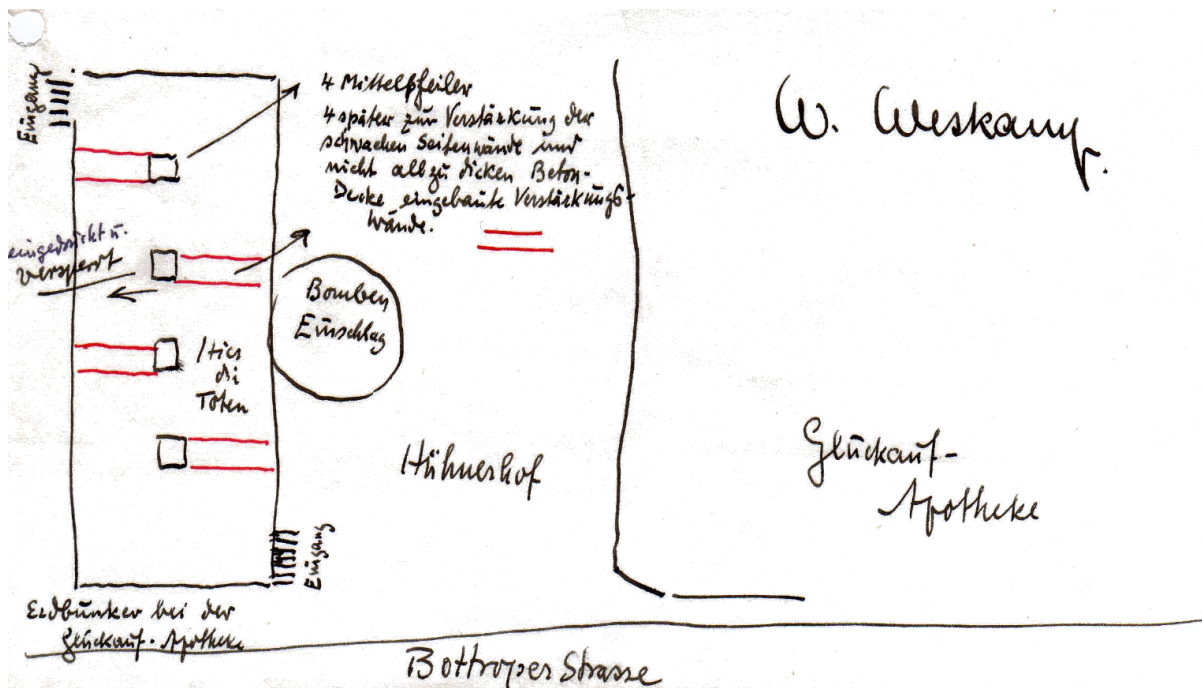 Eingang
4 Mittelpfeiler
4 später zur Verstärkung der
schwachen Seitenwände und
nicht allzu dicken Beton-
Decke eingebaute Verstärkungs-
wände.
W. Weskamp.
eingedrückt u.
versperrt
Bomben
Einschlag
Hier
die
Toten
Hühnerhof
Glückauf-
Apotheke
Eingang
Erdbunker bei der
Glückauf-Apotheke
Bottroper Strasse